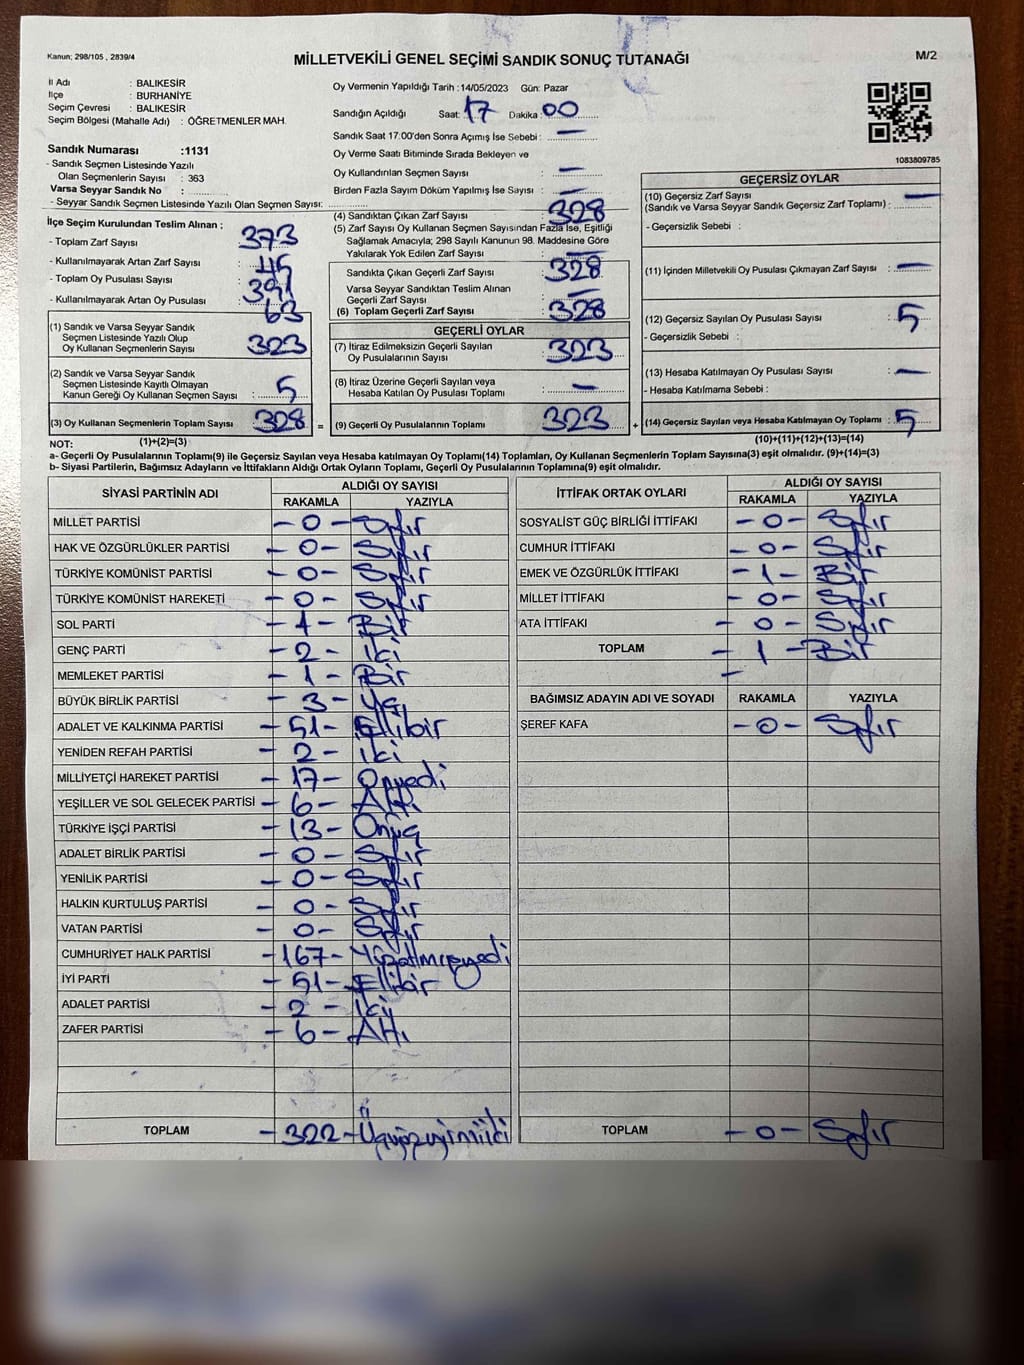 Kanun; 298/105 , 2839/4
MİLLETVEKİLİ GENEL SEÇİMİ SANDIK SONUÇ TUTANAĞI
M/2
İl Adı : BALIKESİR
İlçe : BURHANİYE
Seçim Çevresi : BALIKESİR
Seçim Bölgesi (Mahalle Adı) : ÖĞRETMENLER MAH.
Sandık Numarası :1131
- Sandık Seçmen Listesinde Yazılı
Olan Seçmenlerin Sayısı : 363
Varsa Seyyar Sandık No :
- Seyyar Sandık Seçmen Listesinde Yazılı Olan Seçmen Sayısı:
Oy Vermenin Yapıldığı Tarih :14/05/2023 Gün: Pazar
Sandığın Açıldığı Saat: 17 Dakika: 00
Sandık Saat 17:00'den Sonra Açımış İse Sebebi : —
Oy Verme Saati Bitiminde Sırada Bekleyen ve
Oy Kullandırılan Seçmen Sayısı : —
Birden Fazla Sayım Döküm Yapılmış İse Sayısı : —
1083809785
İlçe Seçim Kurulundan Teslim Alınan :
- Toplam Zarf Sayısı : 373
- Kullanılmayarak Artan Zarf Sayısı : 45
- Toplam Oy Pusulası Sayısı : 391
- Kullanılmayarak Artan Oy Pusulası : 63
(1) Sandık ve Varsa Seyyar Sandık
Seçmen Listesinde Yazılı Olup
Oy Kullanan Seçmenlerin Sayısı : 323
(2) Sandık ve Varsa Seyyar Sandık
Seçmen Listesinde Kayıtlı Olmayan
Kanun Gereği Oy Kullanan Seçmen Sayısı : 5
(3) Oy Kullanan Seçmenlerin Toplam Sayısı : 328
(4) Sandıktan Çıkan Zarf Sayısı : 328
(5) Zarf Sayısı Oy Kullanan Seçmen Sayısından Fazla İse, Eşitliği
Sağlamak Amacıyla; 298 Sayılı Kanunun 98. Maddesine Göre
Yakılarak Yok Edilen Zarf Sayısı : —
Sandıkta Çıkan Geçerli Zarf Sayısı : 328
Varsa Seyyar Sandıktan Teslim Alınan
Geçerli Zarf Sayısı : —
(6) Toplam Geçerli Zarf Sayısı : 328
GEÇERLİ OYLAR
(7) İtiraz Edilmeksizin Geçerli Sayılan
Oy Pusulalarının Sayısı : 323
(8) İtiraz Üzerine Geçerli Sayılan veya
Hesaba Katılan Oy Pusulası Toplamı : —
= (9) Geçerli Oy Pusulalarının Toplamı : 323
GEÇERSİZ OYLAR
(10) Geçersiz Zarf Sayısı
(Sandık ve Varsa Seyyar Sandık Geçersiz Zarf Toplamı) : —
- Geçersizlik Sebebi :
(11) İçinden Milletvekili Oy Pusulası Çıkmayan Zarf Sayısı : —
(12) Geçersiz Sayılan Oy Pusulası Sayısı : 5
- Geçersizlik Sebebi :
(13) Hesaba Katılmayan Oy Pusulası Sayısı : —
- Hesaba Katılmama Sebebi :
+ (14) Geçersiz Sayılan veya Hesaba Katılmayan Oy Toplamı : 5
NOT: (1)+(2)=(3) (10)+(11)+(12)+(13)=(14)
a- Geçerli Oy Pusulalarının Toplamı(9) ile Geçersiz Sayılan veya Hesaba katılmayan Oy Toplamı(14) Toplamları, Oy Kullanan Seçmenlerin Toplam Sayısına(3) eşit olmalıdır. (9)+(14)=(3)
b- Siyasi Partilerin, Bağımsız Adayların ve İttifakların Aldığı Ortak Oyların Toplamı, Geçerli Oy Pusulalarının Toplamına(9) eşit olmalıdır.
SİYASİ PARTİNİN ADI ALDIĞI OY SAYISI
RAKAMLA YAZIYLA
MİLLET PARTİSİ - 0 - Sıfır
HAK VE ÖZGÜRLÜKLER PARTİSİ - 0 - Sıfır
TÜRKİYE KOMÜNİST PARTİSİ - 0 - Sıfır
TÜRKİYE KOMÜNİST HAREKETİ - 0 - Sıfır
SOL PARTİ - 1 - Bir
GENÇ PARTİ - 2 - İki
MEMLEKET PARTİSİ - 1 - Bir
BÜYÜK BİRLİK PARTİSİ - 3 - Üç
ADALET VE KALKINMA PARTİSİ - 51 - Ellibir
YENİDEN REFAH PARTİSİ - 2 - İki
MİLLİYETÇİ HAREKET PARTİSİ - 17 - Onyedi
YEŞİLLER VE SOL GELECEK PARTİSİ - 6 - Altı
TÜRKİYE İŞÇİ PARTİSİ - 13 - Onüç
ADALET BİRLİK PARTİSİ - 0 - Sıfır
YENİLİK PARTİSİ - 0 - Sıfır
HALKIN KURTULUŞ PARTİSİ - 0 - Sıfır
VATAN PARTİSİ - 0 - Sıfır
CUMHURİYET HALK PARTİSİ - 167 - Yüzatmışyedi
İYİ PARTİ - 51 - Ellibir
ADALET PARTİSİ - 2 - İki
ZAFER PARTİSİ - 6 - Altı
TOPLAM - 322 - Üçyüzyirmiiki
İTTİFAK ORTAK OYLARI ALDIĞI OY SAYISI
RAKAMLA YAZIYLA
SOSYALİST GÜÇ BİRLİĞİ İTTİFAKI - 0 - Sıfır
CUMHUR İTTİFAKI - 0 - Sıfır
EMEK VE ÖZGÜRLÜK İTTİFAKI - 1 - Bir
MİLLET İTTİFAKI - 0 - Sıfır
ATA İTTİFAKI - 0 - Sıfır
TOPLAM - 1 - Bir
BAĞIMSIZ ADAYIN ADI VE SOYADI RAKAMLA YAZIYLA
ŞEREF KAFA - 0 - Sıfır
TOPLAM - 0 - Sıfır